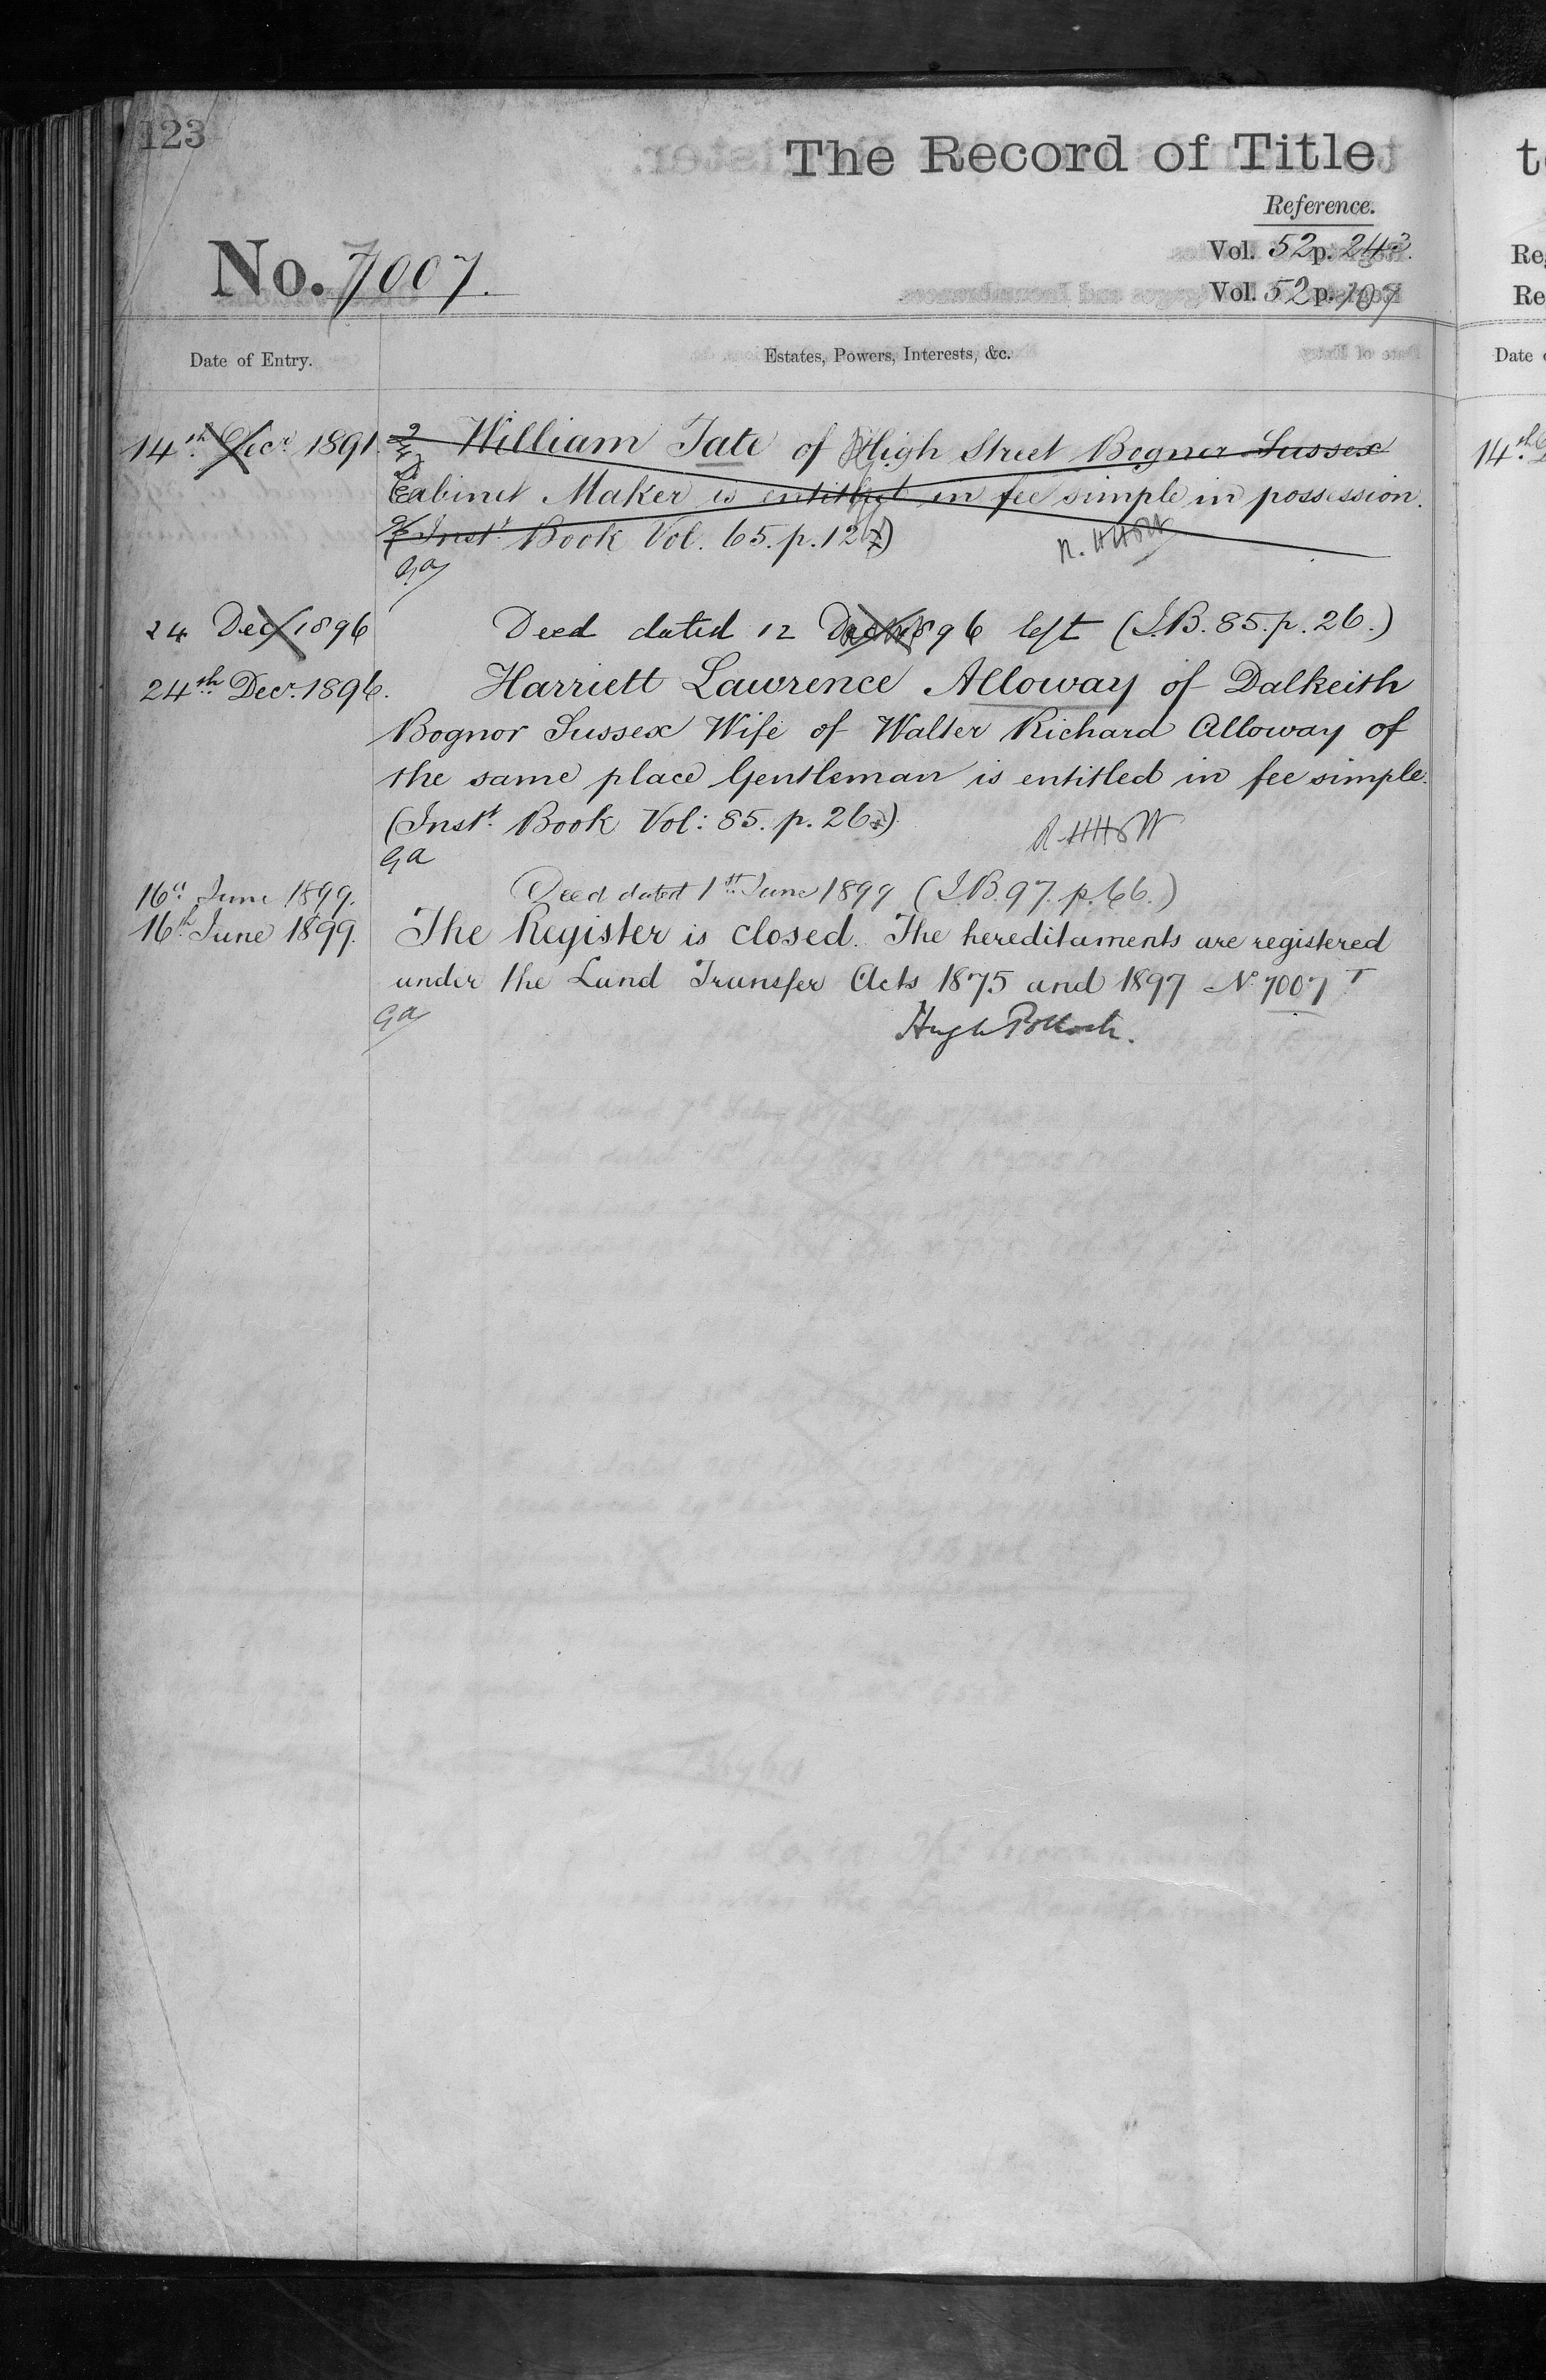 123
The Record of Title
Reference.
No. 7007.
Vol. 52 p. 243.
Vol. 52 p. 107
Date of Entry.
Estates, Powers, Interests, &c.
14th Decr 1891.
William Tate of High Street Bognor Sussex
Cabinet Maker is entitled in fee simple in possession.
(Inst. Book Vol. 65. p. 127)
R.HHSW
Ga
24 Dec 1896
Deed dated 12 Dec 1896 left (I.B. 85. p. 26.)
24th Decr 1896.
Harriett Lawrence Alloway of Dalkeith
Bognor Sussex Wife of Walter Richard Alloway of
the same place Gentleman is entitled in fee simple.
(Inst. Book Vol: 85. p. 26)
R.HHSW
Ga
16th June 1899.
Deed dated 1st June 1899 (I.B. 97. p. 66.)
16th June 1899.
The Register is closed. The hereditaments are registered
under the Land Transfer Acts 1875 and 1897 No 7007 T
Ga
Hugh Pollock.
t
Re
Re
Date
14th